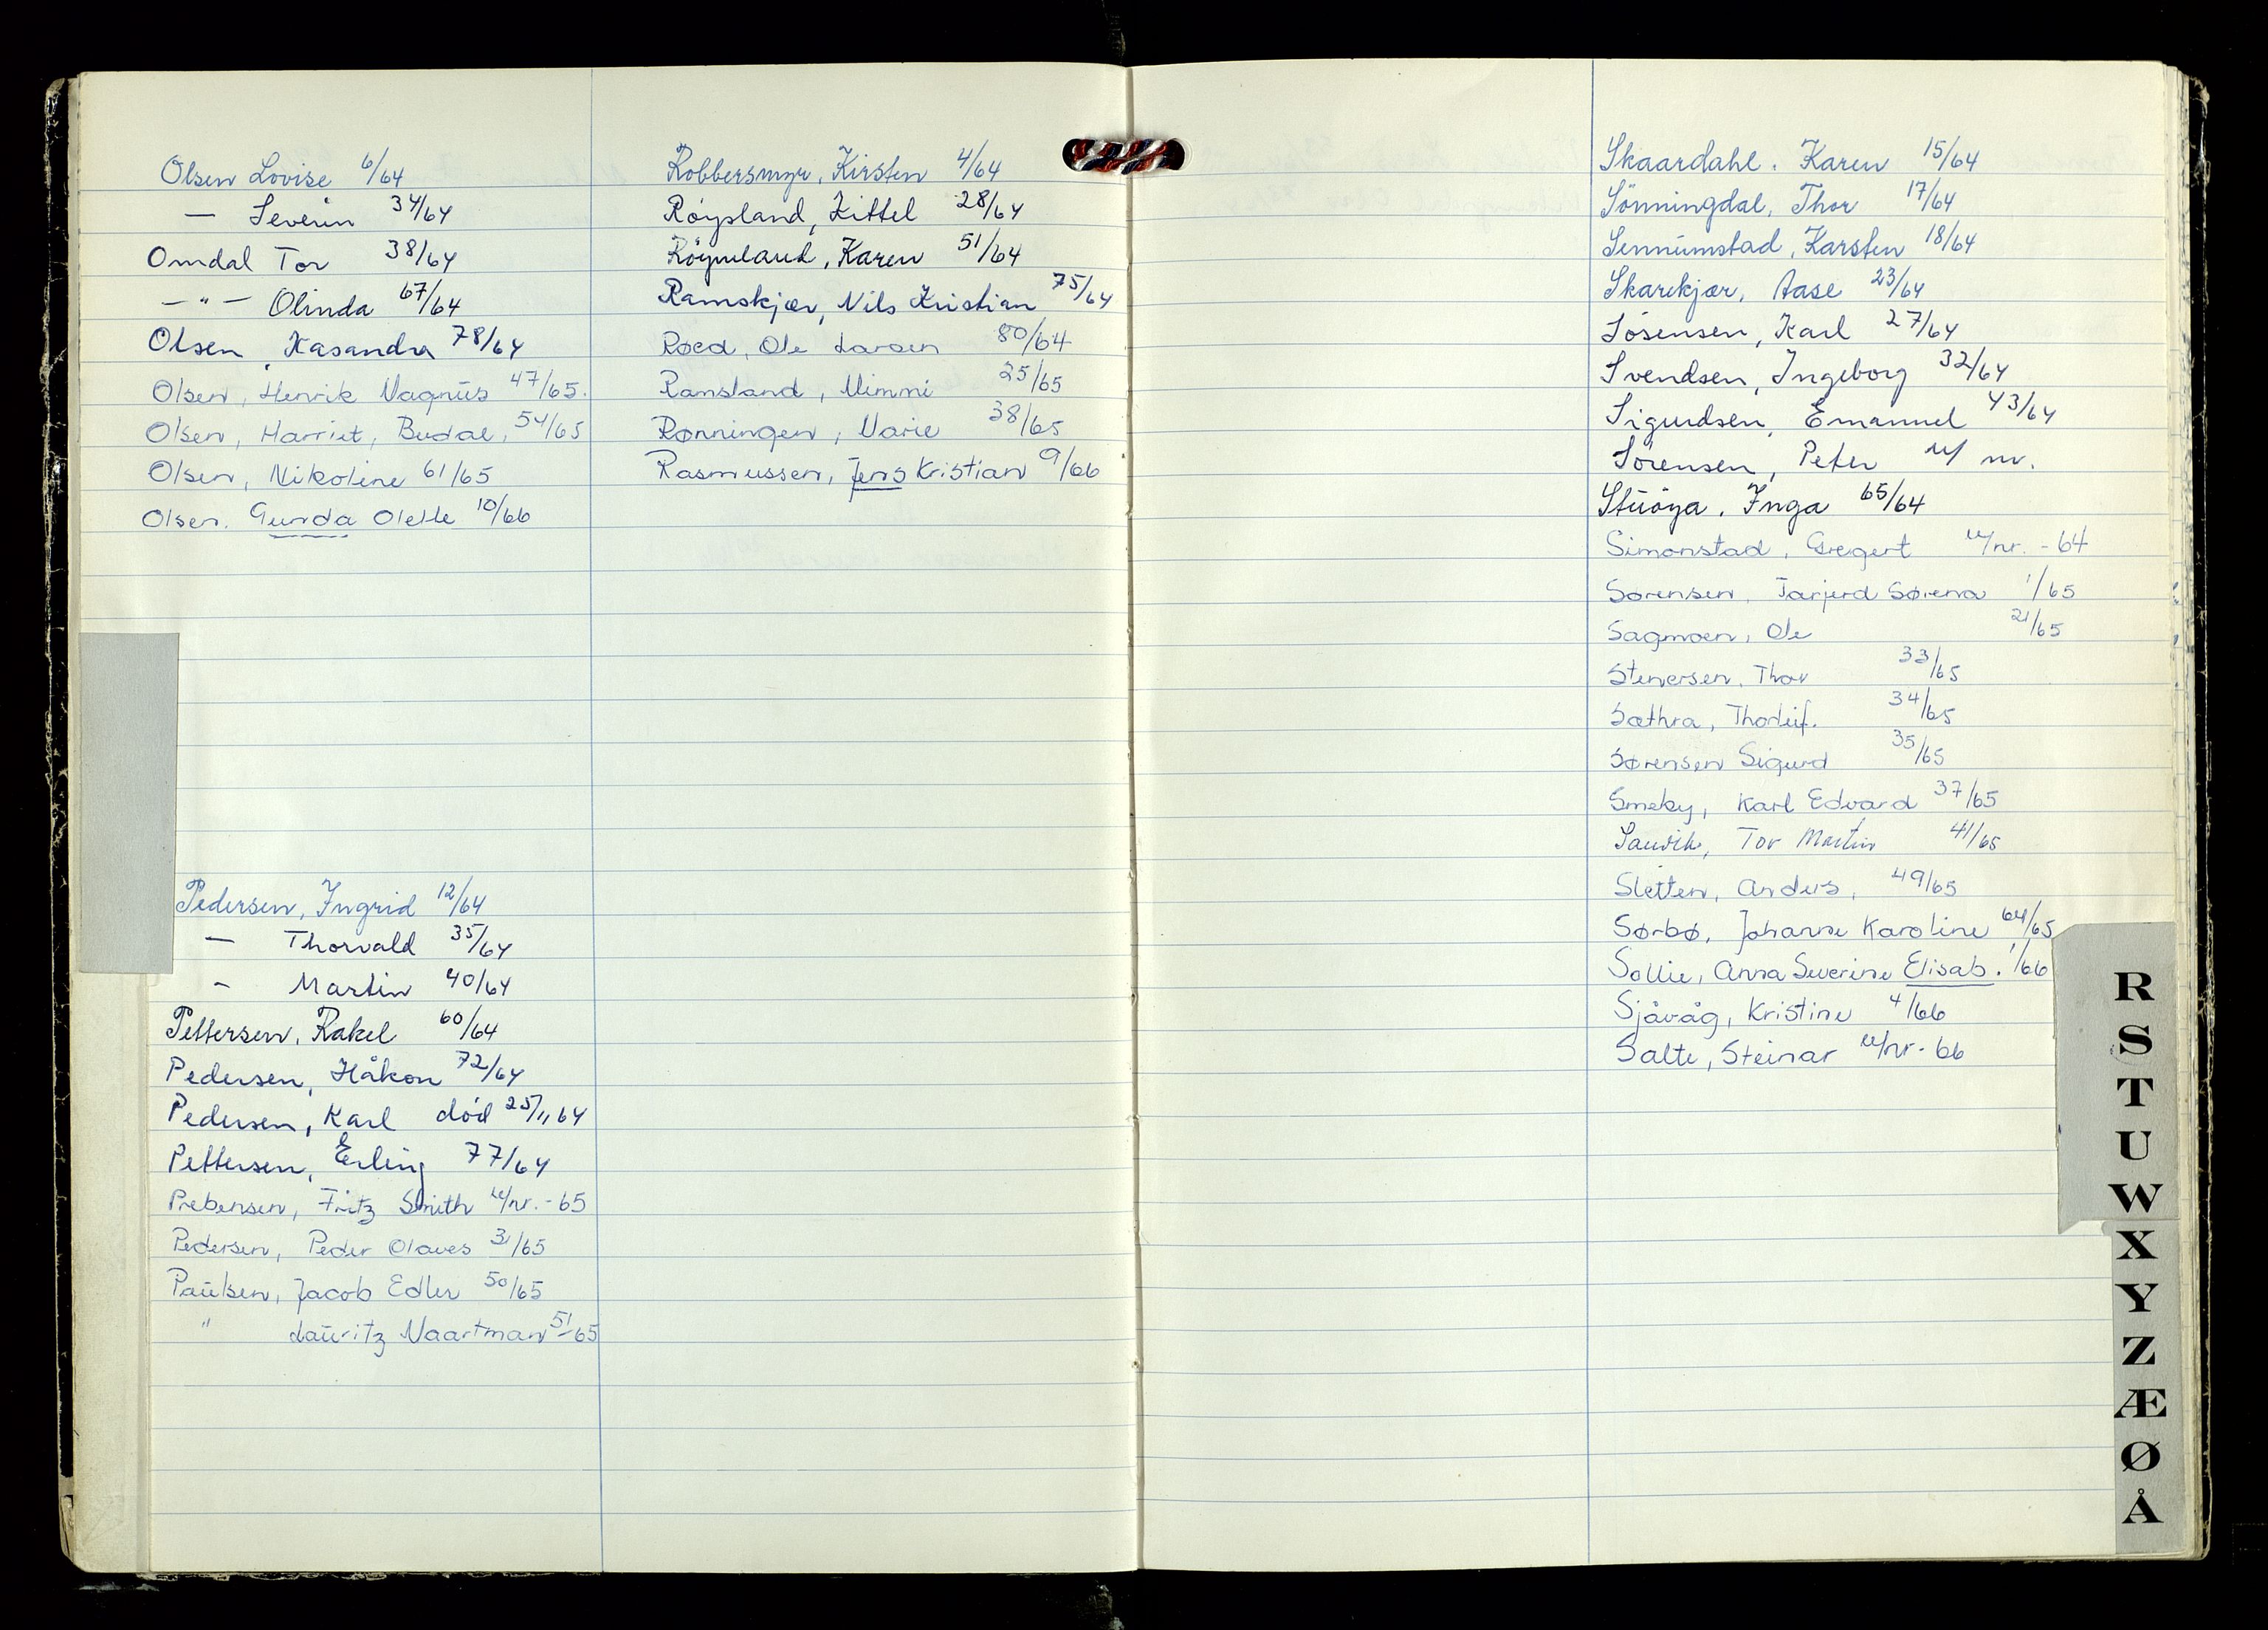 Olsen Lovise 6/64
— Severin 34/64
Omdal Tor 38/64
—"— Olinda 67/64
Olsen, Kasandra 78/64
Olsen, Henrik Magnus 47/65.
Olsen, Harriet, Budal, 54/65
Olsen, Nikoline 61/65
Olsen. Gunda Olette 10/66
Pedersen, Ingrid 12/64
— Thorvald 35/64
— Martin 40/64
Pettersen, Rakel 60/64
Pedersen, Håkon 72/64
Pedersen, Karl död 25/11 64
Pettersen, Erling 77/64
Prebensen, Fritz Smith u/nr. - 65
Pedersen, Peder Olaves 31/65
Paulsen, Jacob Edler 50/65
" Lauritz Maartman 51-65
Robbersmyr, Kirsten 4/64
Röysland, Kittel 28/64
Röyneland, Karen 51/64
Ramskjær, Nils Kristian 75/64
Røed, Ole Larsen 80/64
Ramsland, Mimmi 25/65
Rønningen, Marie 38/65
Rasmussen, Jens Kristian 9/66
Skaardahl. Karen 15/64
Sönningdal, Thor 17/64
Sennumstad, Karsten 18/64
Skarekjær, Aase 23/64
Sösensen, Karl 27/64
Svendsen, Ingeborg 32/64
Sigurdsen, Emanuel 43/64
Sörensen, Peter u/ nr.
Stuöya, Inga 65/64
Simonstad, Gregert u/nr. - 64
Sørensen, Tarjerd Sørena 1/65
Sagmoen, Ole 21/65
Stenersen, Thor 33/65
Sæthra, Thorleif. 34/65
Sørensen Sigurd 35/65
Smeby, Karl Edvard 37/65
Sauvik, Tor Martin 41/65
Sletten, Anders, 49/65
Sørbø, Johanne Karoline 64/65
Sollie, Anna Severine Elisab. 1/66
Sjåvåg, Kristine 4/66
Salte, Steinar u/nr - 66
R
S
T
U
W
X
Y
Z
Æ
Ø
Å